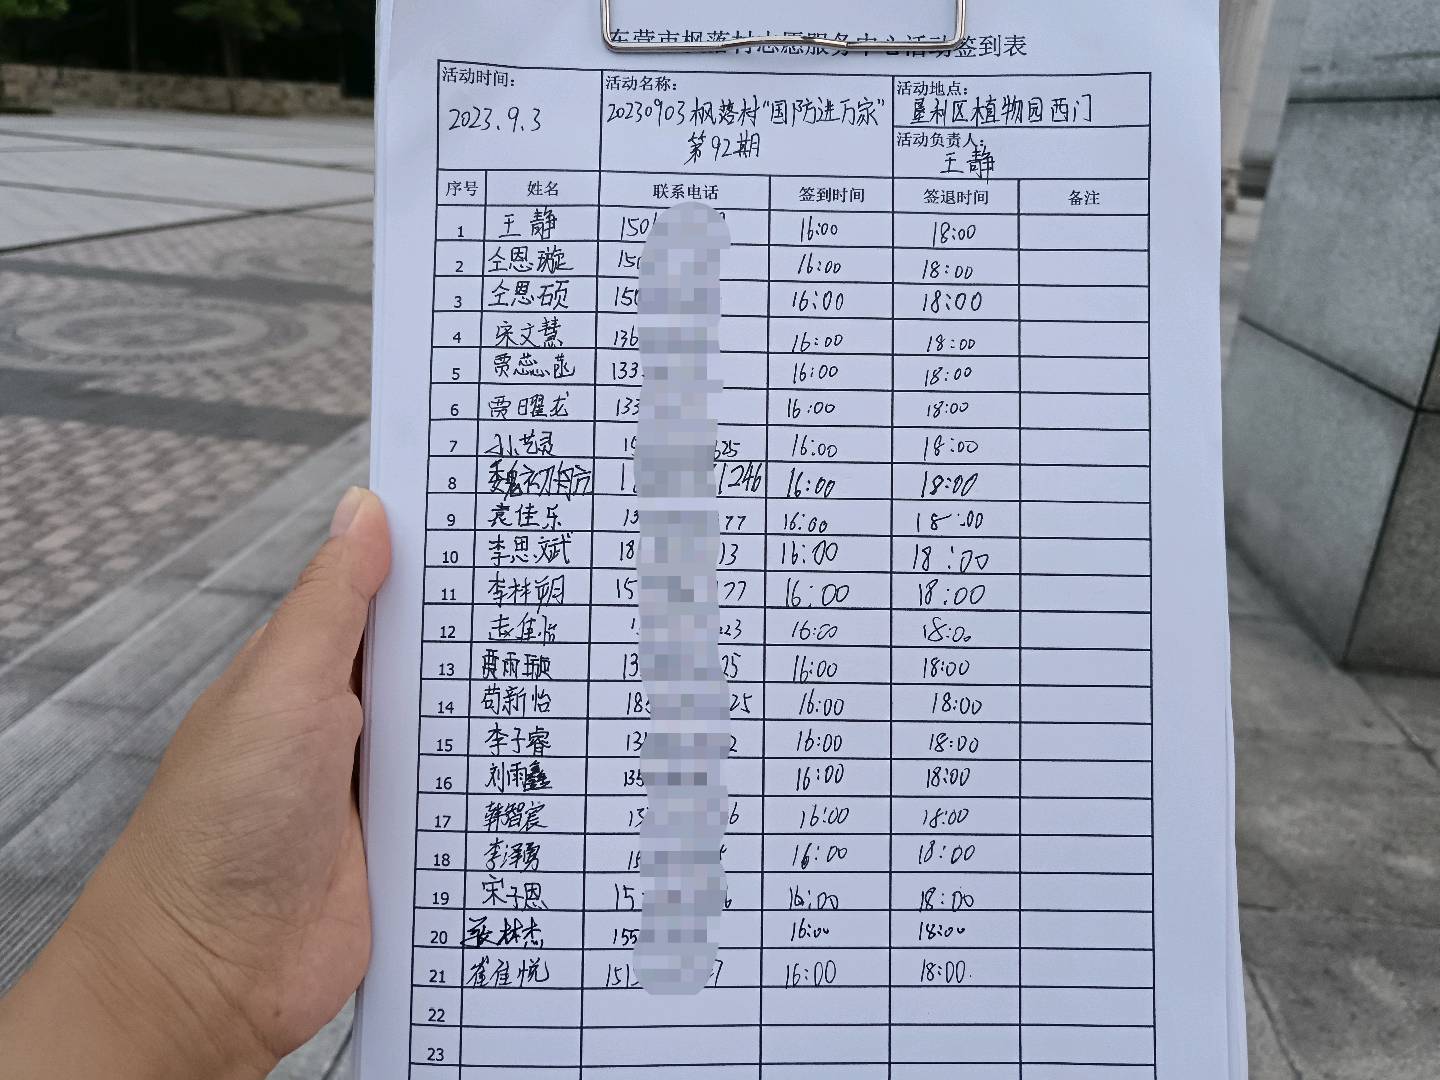 东营市枫落村志愿服务中心活动签到表
活动时间： 活动名称： 活动地点：
2023.9.3 20230903枫落村“国防进万家” 垦利区植物园西门
第92期 活动负责人：
王静
序号 姓名 联系电话 签到时间 签退时间 备注
1 王静 150 16:00 18:00
2 仝恩璇 150 16:00 18:00
3 仝恩硕 150 16:00 18:00
4 宋文慧 136 16:00 18:00
5 贾蕊菡 133 16:00 18:00
6 贾曜龙 133 16:00 18:00
7 15 625 16:00 18:00
8 1 1246 16:00 18:00
9 袁佳乐 13 77 16:00 18:00
10 李思斌 18 13 16:00 18:00
11 李梓朔 15 177 16:00 18:00
12 赵佳怡 23 16:00 18:00
13 贾雨璇 13 25 16:00 18:00
14 苟新怡 18 25 16:00 18:00
15 李子睿 13 2 16:00 18:00
16 刘雨鑫 135 16:00 18:00
17 韩智宸 13 6 16:00 18:00
18 李泽勇 15 16:00 18:00
19 宋子恩 15 6 16:00 18:00
20 155 16:00 18:00
21 崔佳悦 151 7 16:00 18:00
22
23